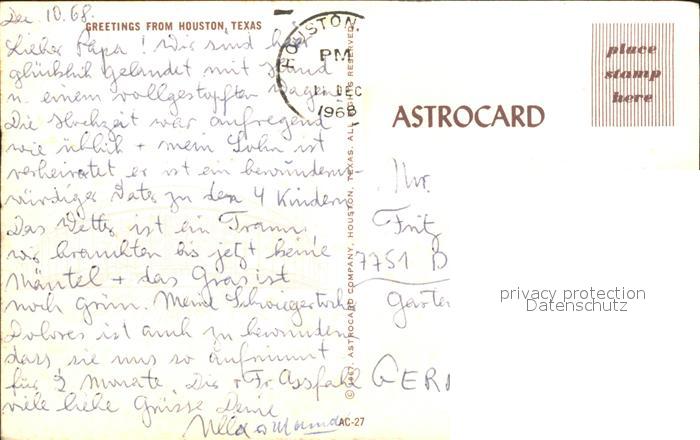 Dez. 10. 68.
GREETINGS FROM HOUSTON, TEXAS
Lieber Papa! Wir sind hier
glücklich gelandet mit Hund
u. einem vollgestopften Wagen
Die Hochzeit war aufregend
wie üblich + mein Sohn ist
verheiratet er ist ein bewunderns-
würdiger Vater zu den 4 Kindern
Das Wetter ist ein Traum,
wir brauchten bis jetzt keine
Mäntel + das Gras ist
noch Grün. Meine Schwiegertochter
Dolores ist auch zu bewundern
dass sie uns so aufnimmt
für 2 Monate. Die
viele liebe Grüsse Deine
Ulla
HOUSTON,
PM
DEC
1968
© 1967 ASTROCARD COMPANY, HOUSTON, TEXAS. ALL RIGHTS RESERVED.
AC-27
ASTROCARD
place
stamp
here
Mr.
Fritz
7751 B
Garten
GER
privacy protection
Datenschutz